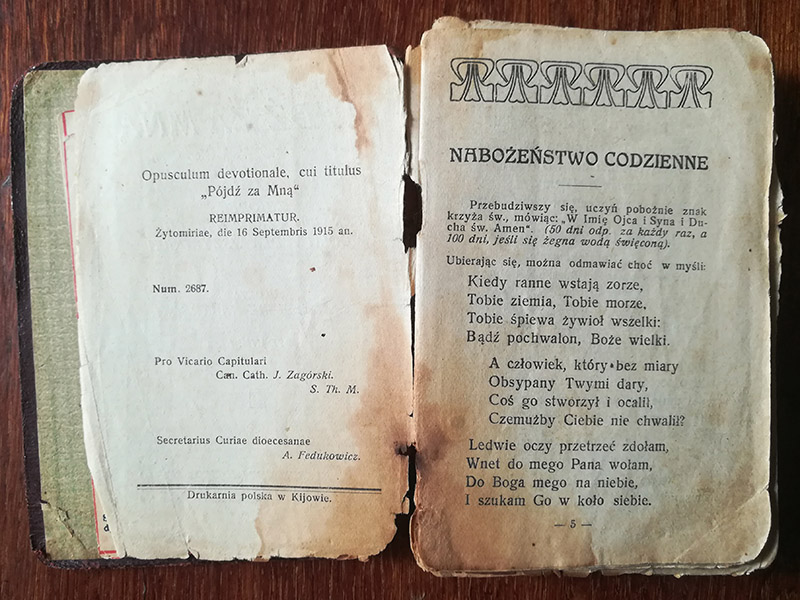 Opusculum devotionale, cui titulus
„Pójdź za Mną“
REIMPRIMATUR.
Żytomiriae, die 16 Septembris 1915 an.
Num. 2687.
Pro Vicario Capitulari
Can. Cath. J. Zagórski.
S. Th. M.
Secretarius Curiae dioecesanae
A. Fedukowicz.
Drukarnia polska w Kijowie.
NABOŻEŃSTWO CODZIENNE
Przebudziwszy się, uczyń pobożnie znak
krzyża św., mówiąc: „W Imię Ojca i Syna i Du-
cha św. Amen“. (50 dni odp. za każdy raz, a
100 dni, jeśli się żegna wodą święconą).
Ubierając się, można odmawiać choć w myśli:
Kiedy ranne wstają zorze,
Tobie ziemia, Tobie morze,
Tobie śpiewa żywioł wszelki:
Bądź pochwalon, Boże wielki.
A człowiek, który bez miary
Obsypany Twymi dary,
Coś go stworzył i ocalił,
Czemużby Ciebie nie chwalił?
Ledwie oczy przetrzeć zdołam,
Wnet do mego Pana wołam,
Do Boga mego na niebie,
I szukam Go w koło siebie.
— 5 —